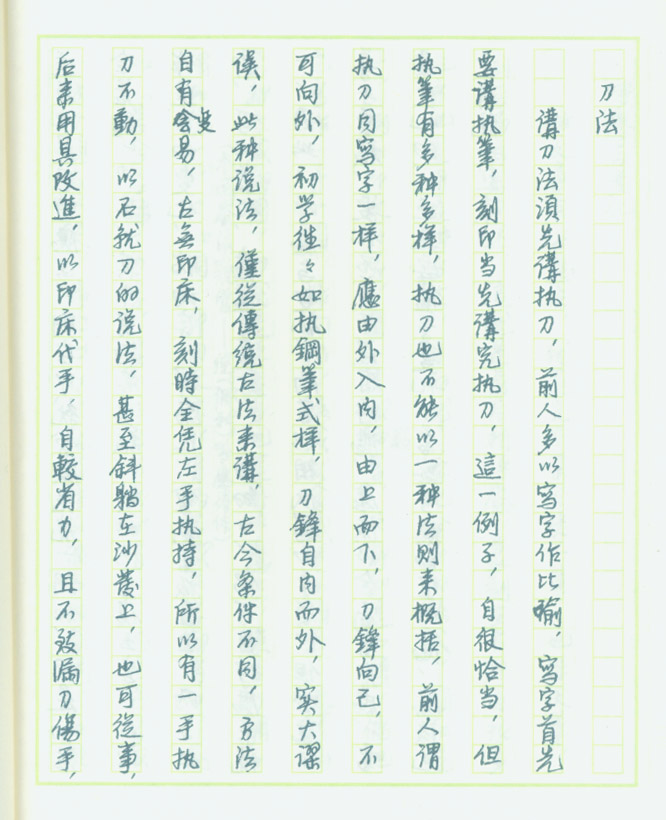 刀法
講刀法須先講执刀，前人多以寫字作比喻，寫字首先
要講执筆，刻印当先講究执刀，這一例子，自很恰当，但
执筆有多种多样，执刀也不能以一种法则来概括，前人谓
执刀同寫字一样，應由外入内，由上而下，刀鋒向己，不
可向外，初学徃々如执鋼筆式样，刀鋒自内而外，実大谬
误，此种说法，僅從傳统古法来講，古今条件不同，方法
自有变易，古無印床，刻時全凭左手执持，所以有一手执
刀不動，以石就刀的说法，甚至斜躺在沙發上，也可從事，
后来用具改進，以印床代手，自較省力，且不致漏刀傷手，